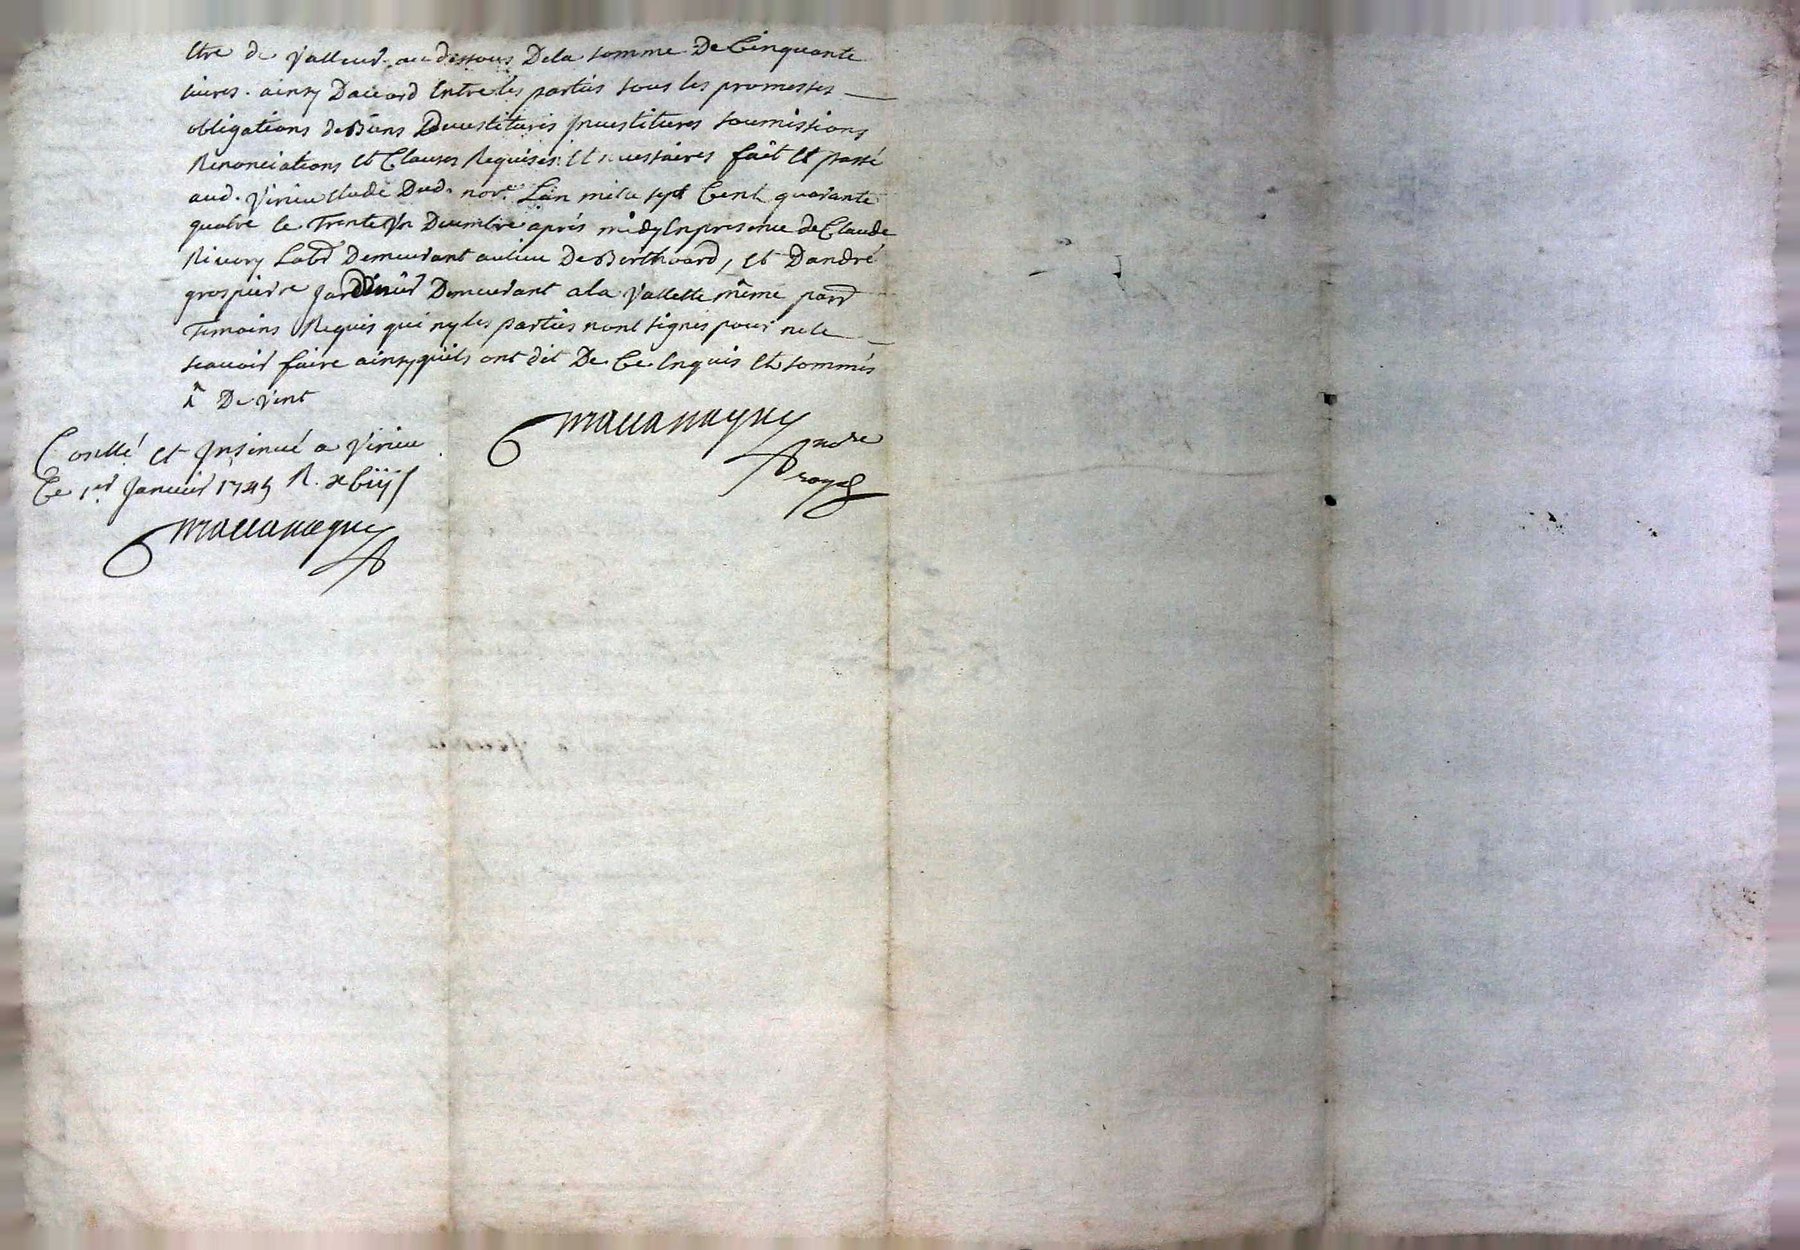 Etre de Valleur au dessous Dela somme De Cinquante
livres. ainsy Daccord Entre les parties sous les promesses
obligations de Biens Devestitures Investitures soumissions
Renonciations Et Clauses Requises Et necessaires fait Et passé
aud. Virieu Etude Dud. nore. L'an mil sept Cent quarante
quatre le Trente Un Decembre après midy En presence de Claude
Rivory Labr Demeurant au lieu De Berthoard, Et D'andré
grospierre Jardinier Demeurant a la Vallette même parr
Temoins Requis qui ny les parties n'ont signés pour ne le
scavoir faire ainsy qu'ils ont dit De Ce Enquis Et sommés
De Vent
Conllé Et Insinué a Virieu
Ce 1er Janvier 1745 R.
nore
royal